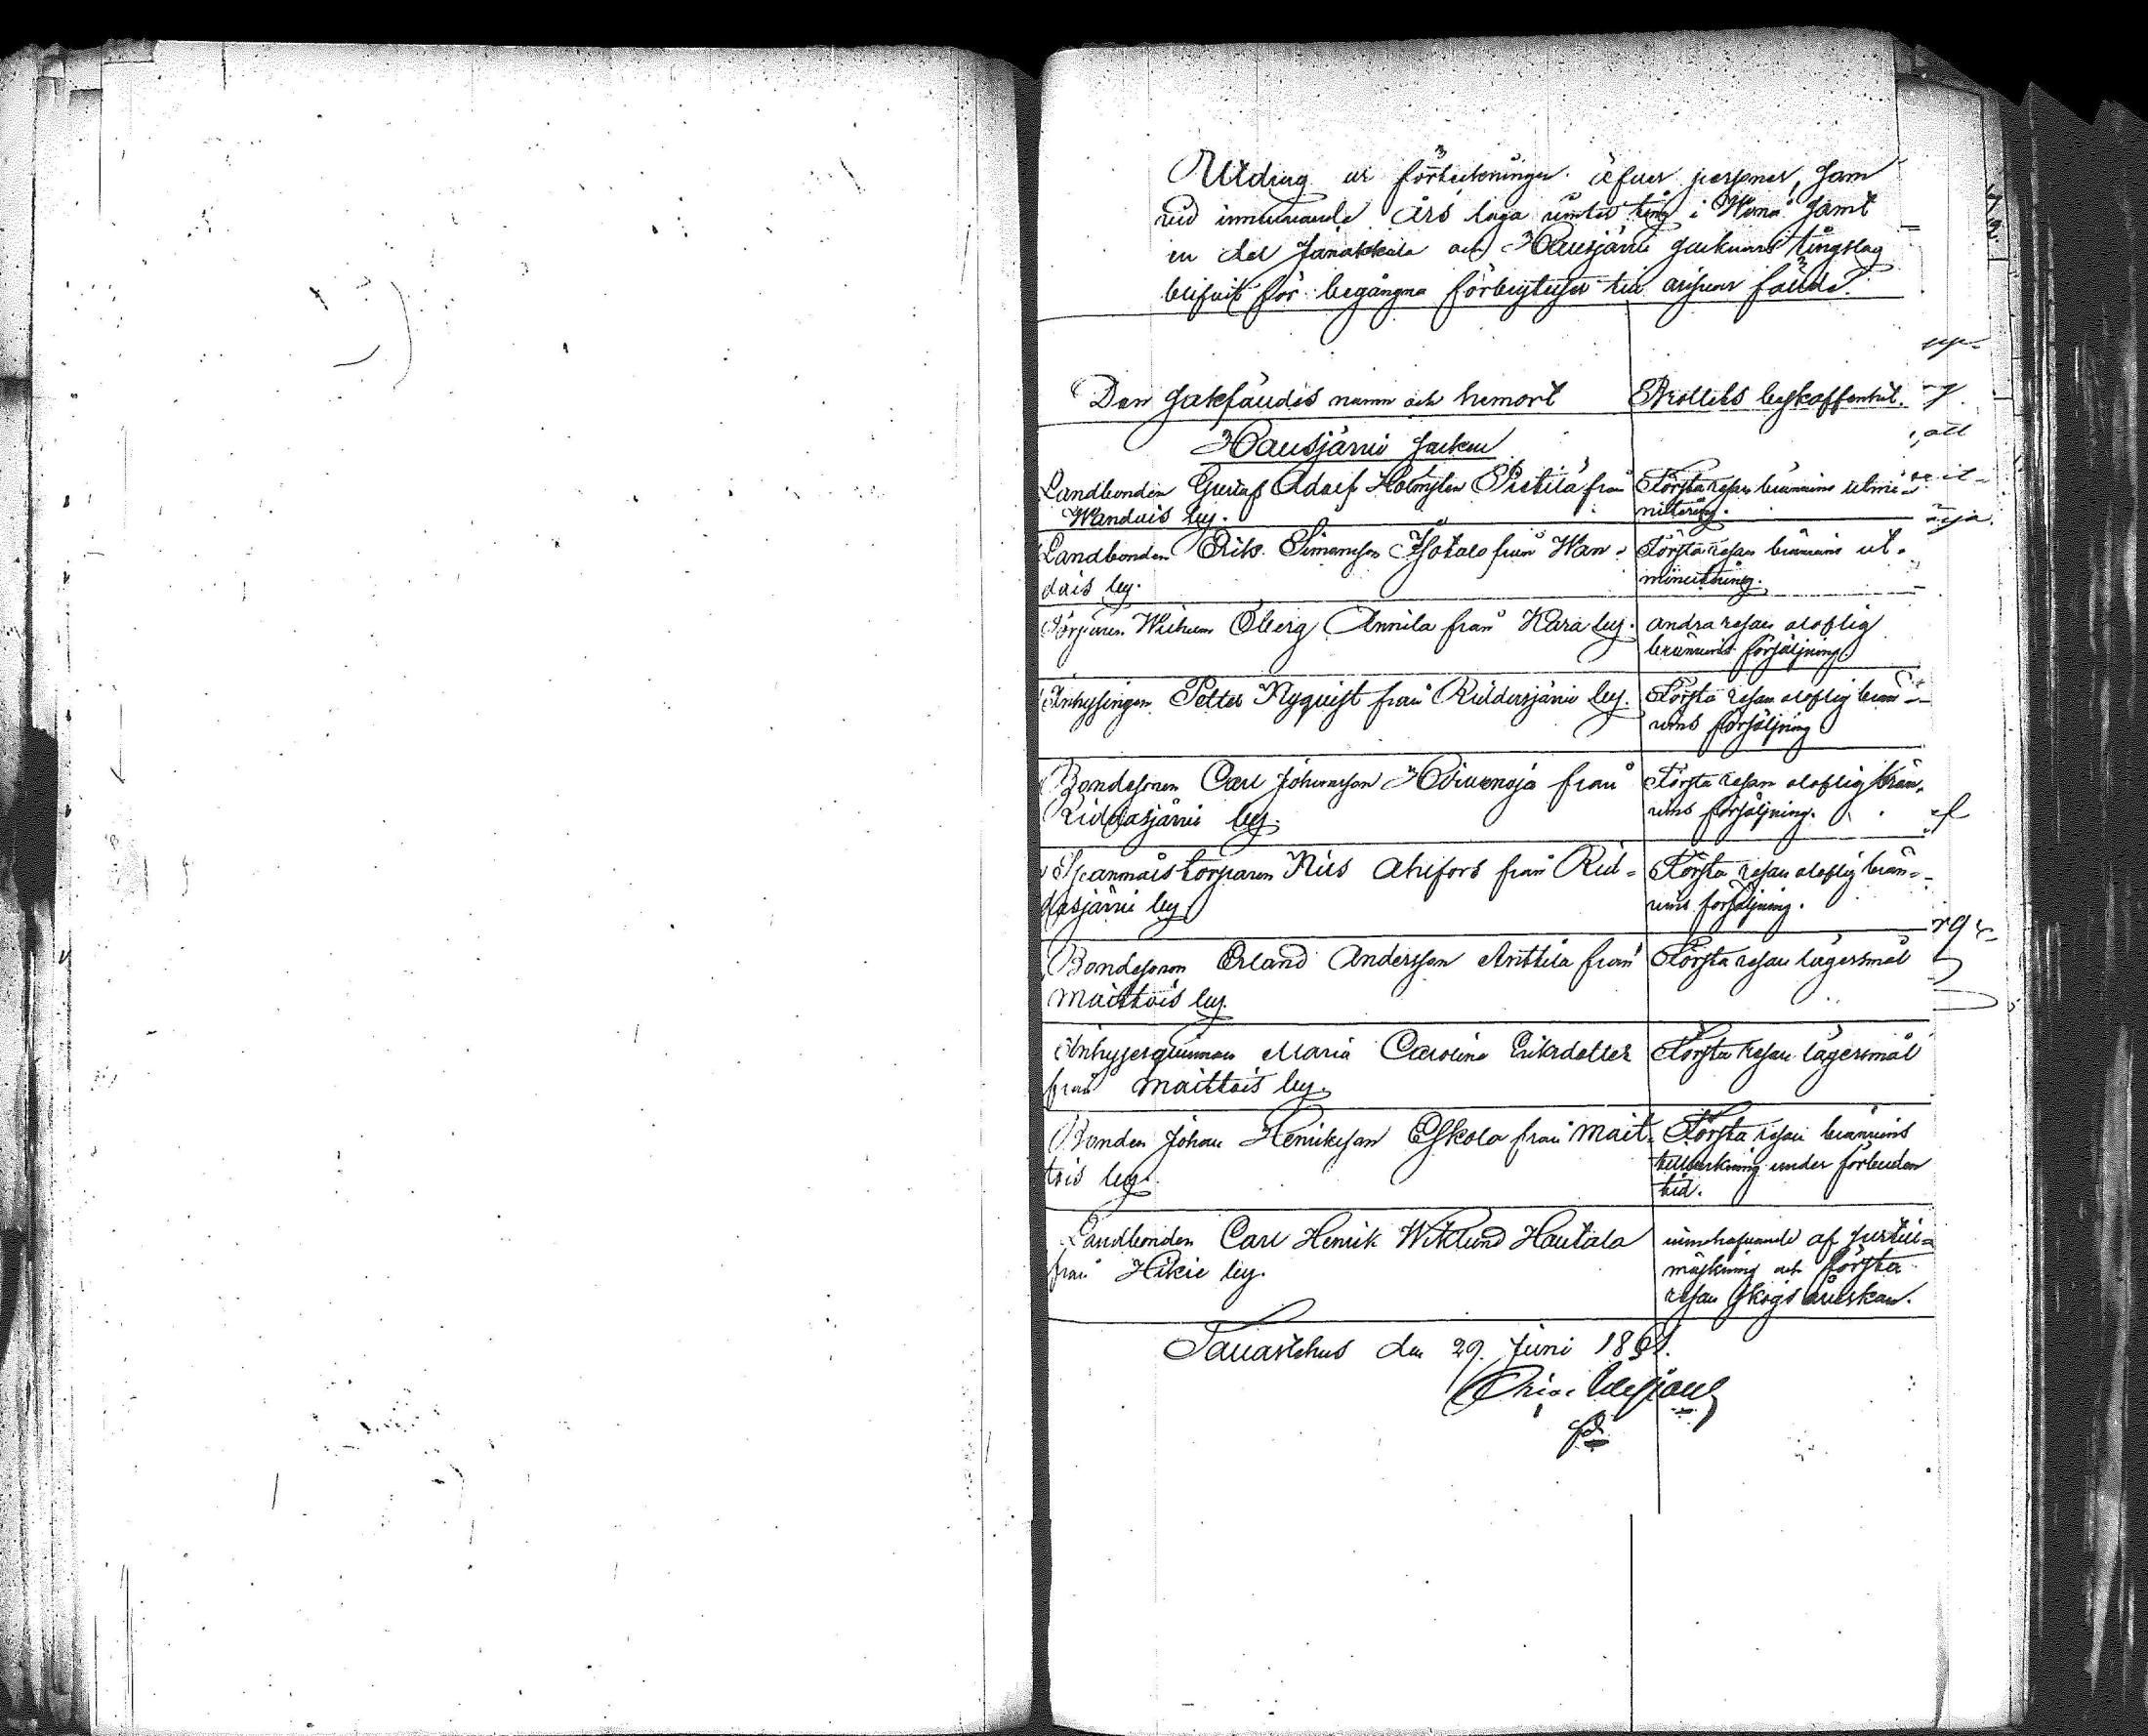 Utdrag ur förteckningen öfver personer, som
vid innevarande års laga vinter ting i Wånå samt
en del Janakkala och Hausjärvi socknars tingslag
blifvit för begångna förbrytelser till ansvar fällde.
Den sakfäldes namn och hemort
Brottets beskaffenhet.
Hausjärvi socken
Landbonden Gustaf Adolf Holmsten Pietilä från
Wandais by.
Första resan bränvins utmi-
nutering.
Landbonden Erik Simonsson Isotalo från Wan-
dais by.
Första resan bränvins ut-
minutering.
Torparen Wilhelm Öberg Annila från Kara by.
andra resan oloflig
bränvins försäljning
Inhysingen Petter Nyqvist från Riddarsjärvi by.
Första resan oloflig brän-
vins försäljning
Bondesonen Carl Johansson Hirvenoja från
Riddasjärvi by.
Första resan oloflig brän-
vins försäljning.
Spanmålstorparen Nils Ahlfors från Rid-
dasjärvi by.
Första resan oloflig brän-
vins försäljning.
Bondesonen Erland Andersson Anttila från
Maittois by.
Första resan lägersmål
Inhysesqvinnan Maria Carolina Eriksdotter
från Maittois by.
Första resan lägersmål
Bonden Johan Henriksson Eskola från Mait-
tois by.
Första resan bränvins
tillverkning under förbuden
tid.
Landbonden Carl Henrik Wiklund Hautala
från Hikie by.
innehafvande af
mäskning och första
resan skogsåverkan.
Tavastehus den 29. Juni 1891.